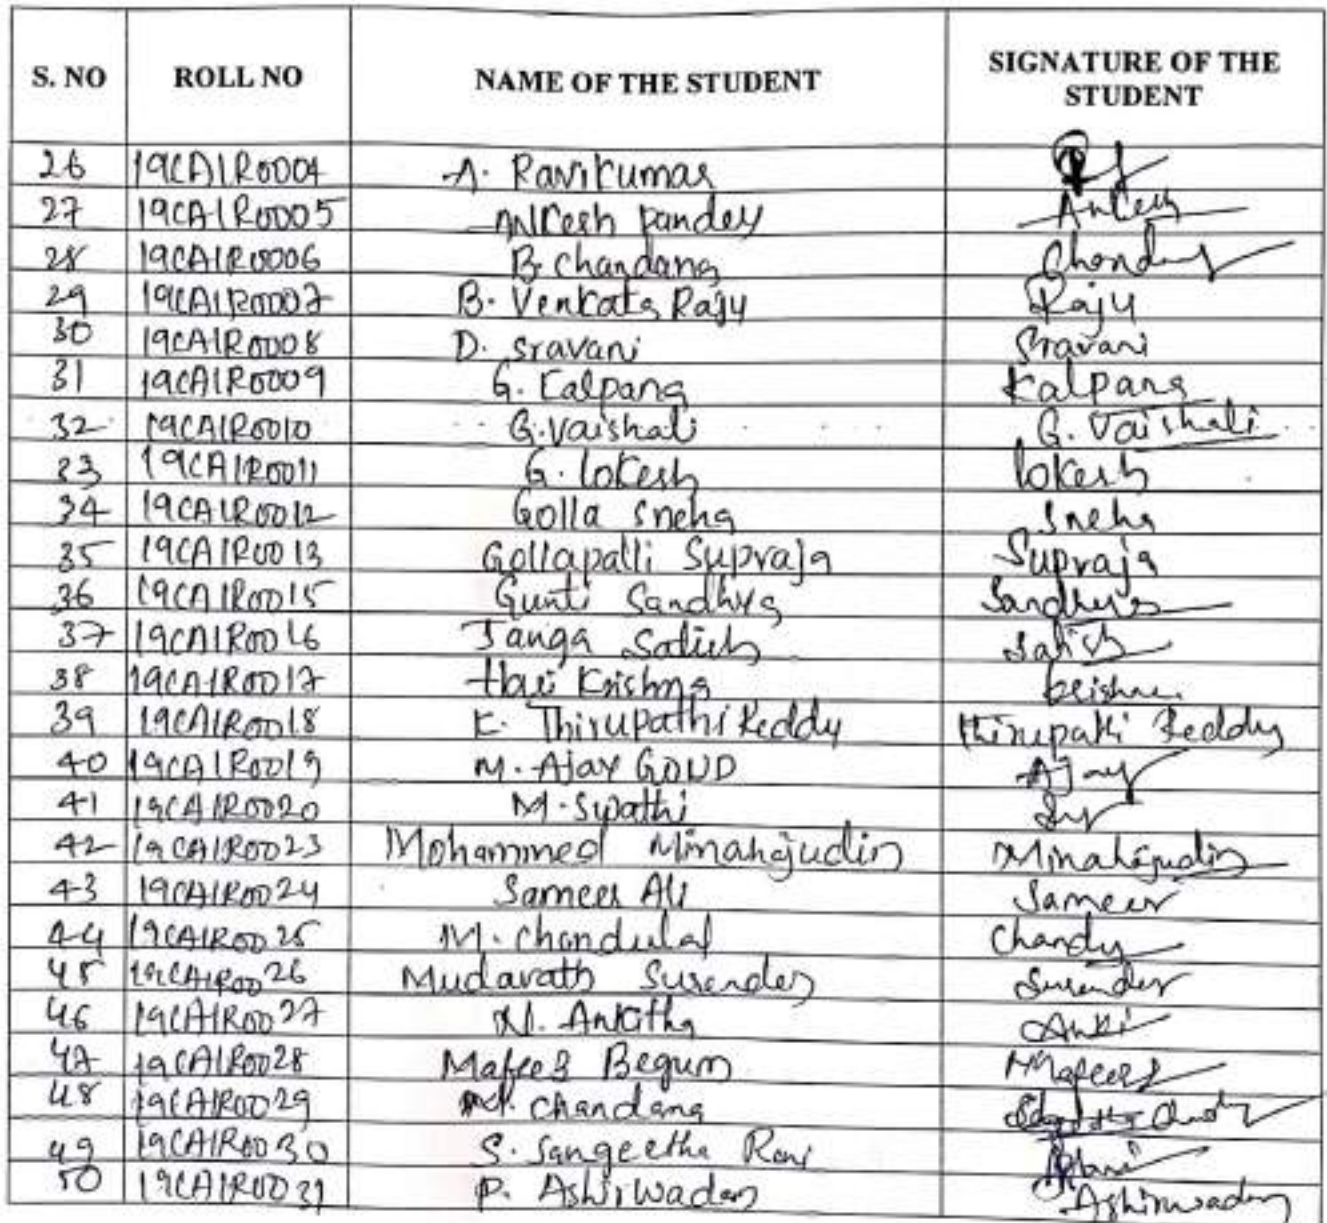 S. NO ROLL NO NAME OF THE STUDENT SIGNATURE OF THE STUDENT
26 19CA1R0004 A. Ravikumar
27 19CA1R0005 Ankesh pandey Ankesh
28 19CA1R0006 B. chandana Chandana
29 19CA1R0007 B. Venkata Raju Raju
30 19CA1R0008 D. Sravani Sravani
31 19CA1R0009 G. Kalpana Kalpana
32 19CA1R0010 G. Vaishali G. Vaishali
33 19CA1R0011 G. lokesh lokesh
34 19CA1R0012 Golla Sneha Sneha
35 19CA1R0013 Gollapalli Supraja Supraja
36 19CA1R0015 Gunti Sandhya Sandhya
37 19CA1R0016 Janga Satish Satish
38 19CA1R0017 Hari Krishna Krishna
39 19CA1R0018 K. Thirupathi Reddy thirupathi Reddy
40 19CA1R0019 M. Ajay GOUD Ajay
41 19CA1R0020 M. Swathi
42 19CA1R0023 Mohammed Minahajudin Minahajudin
43 19CA1R0024 Sameer Ali Sameer
44 19CA1R0025 M. chandulal Chandu
45 19CA1R0026 Mudavath Surender Surender
46 19CA1R0027 N. Ankitha Anki
47 19CA1R0028 Nafees Begum Nafees
48 19CA1R0029 chandana
49 19CA1R0030 S. Sangeetha Rani Rani
50 19CA1R0031 P. Ashirwadam Ashirwadam